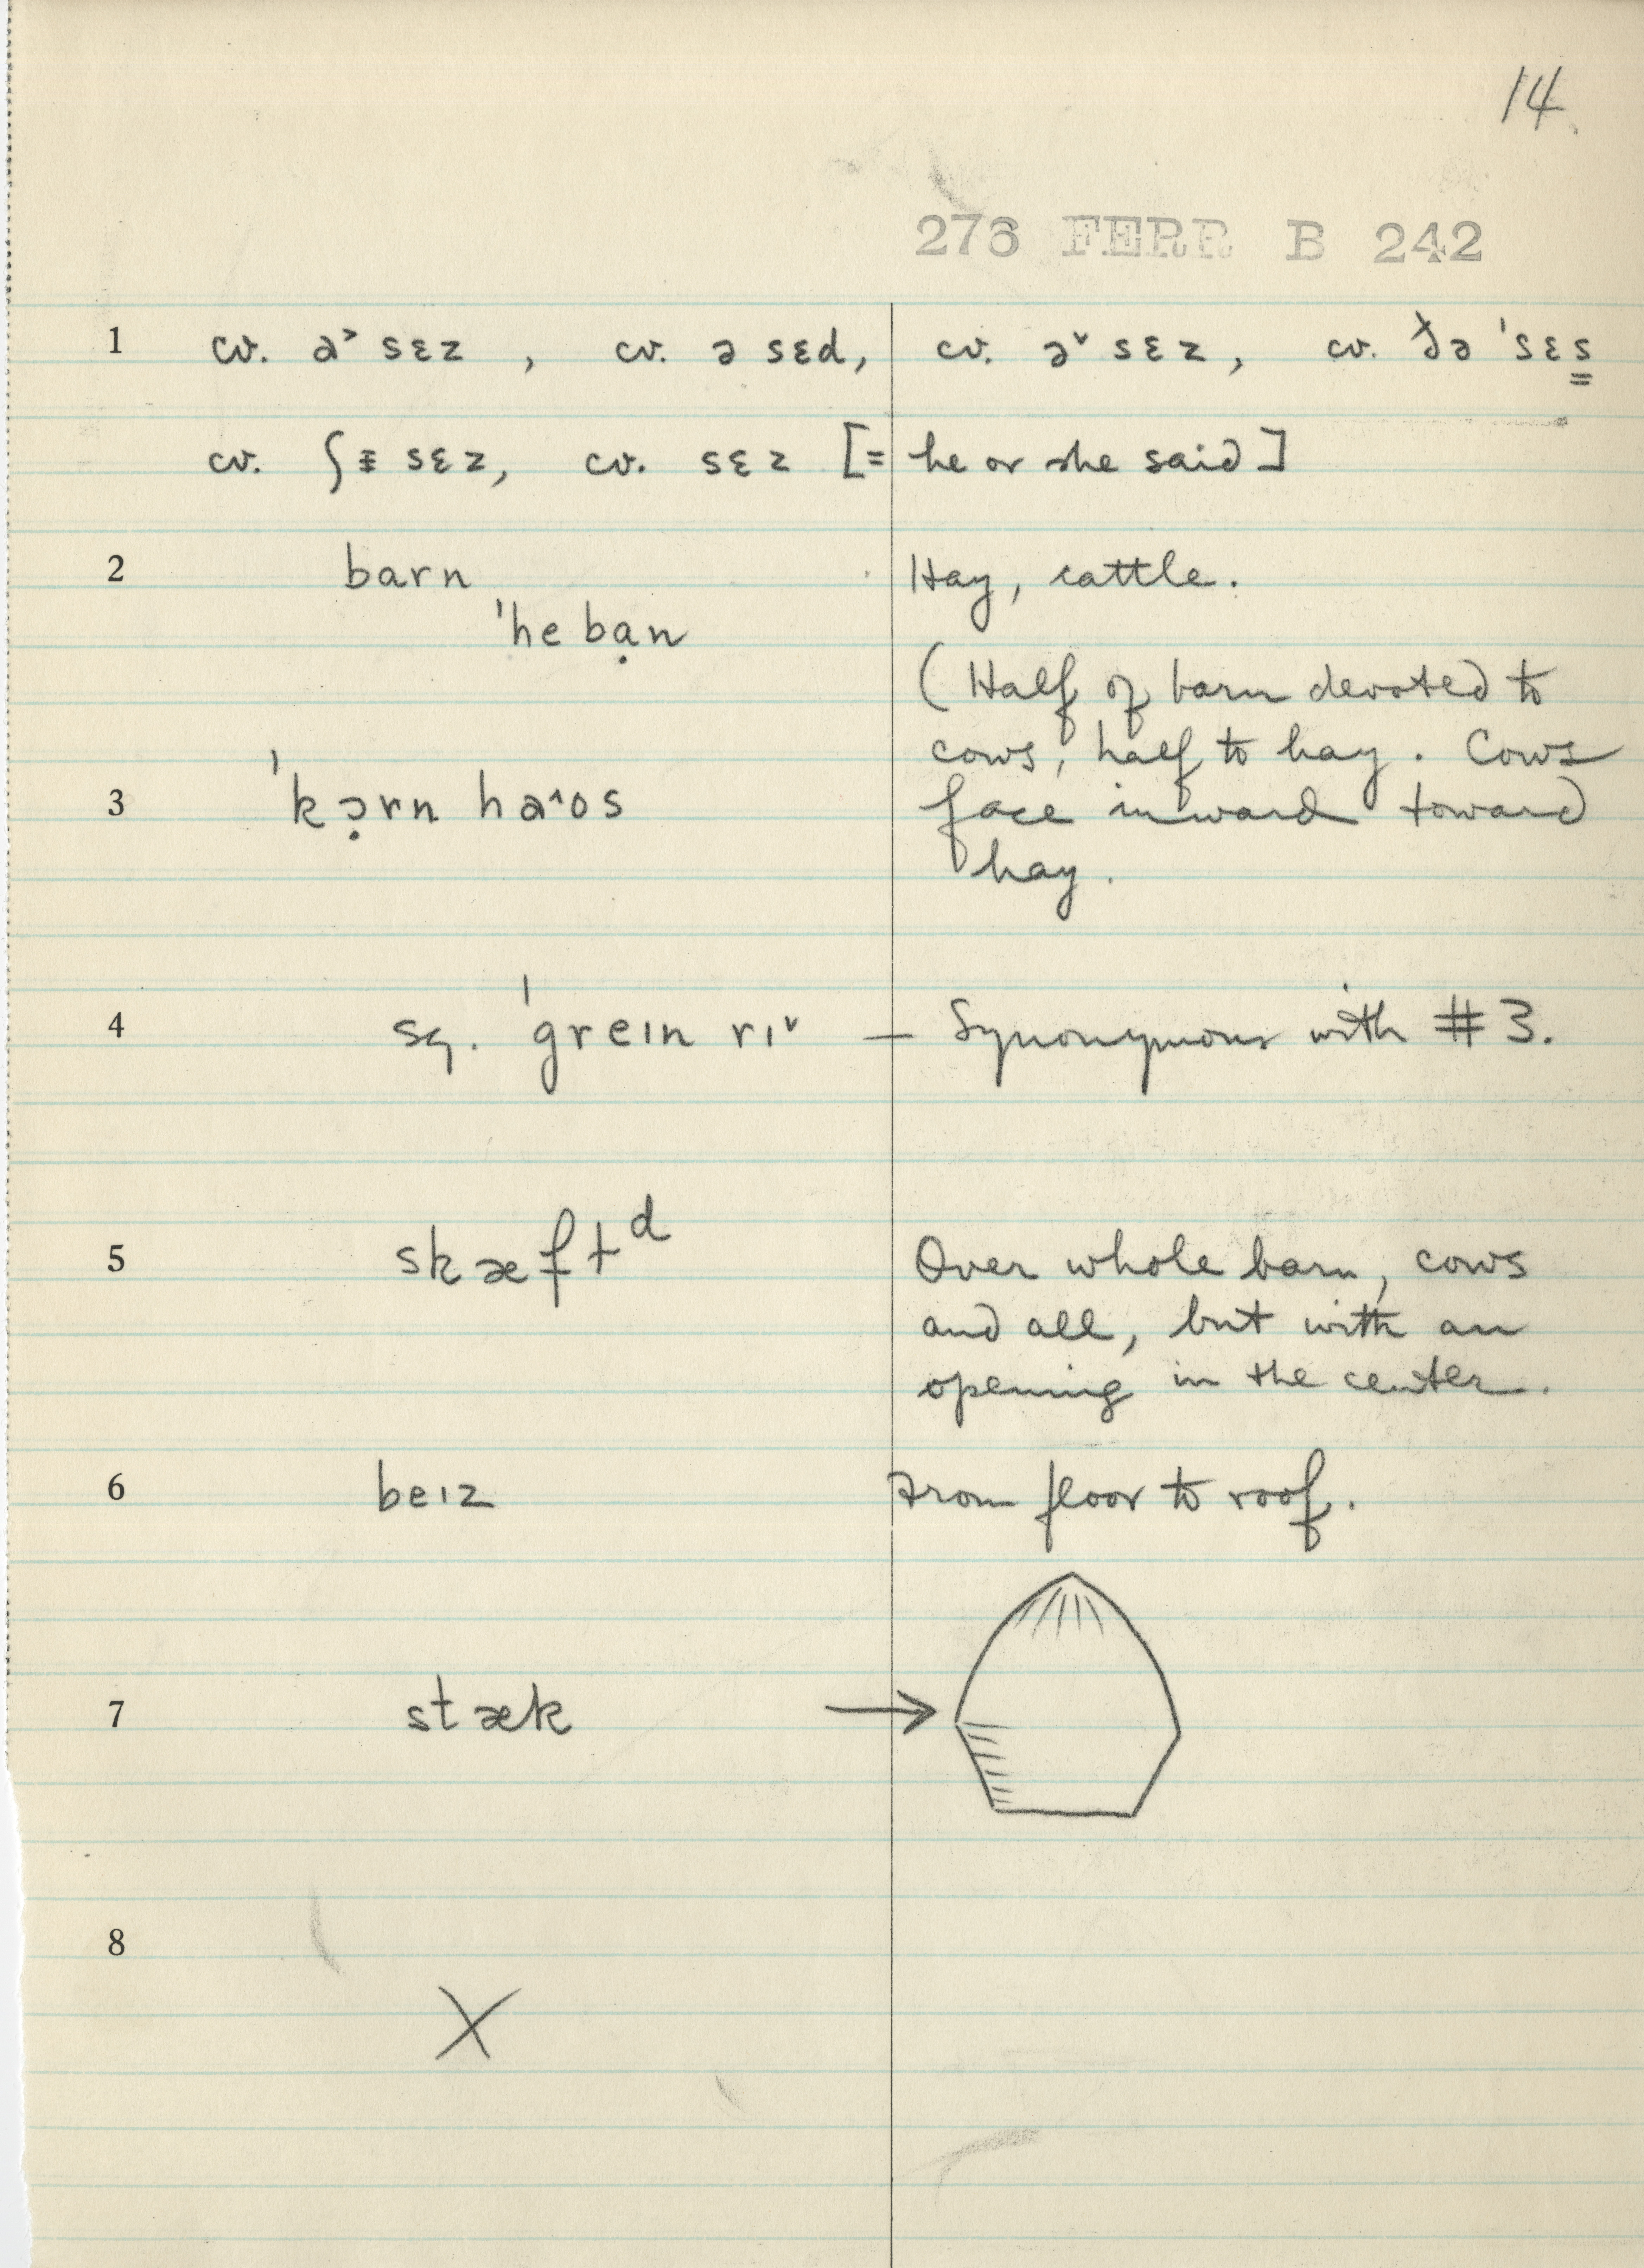 14
276 FERR B 242
1 cv. ə˃ sɛz , cv. ə sɛd, cv. ə˅ sɛz, cv. ðə ˈsɛs̳
cv. ʃᵻ sɛz, cv. sɛz [= he or she said]
2 barn Hay, cattle.
ˈhe bạn
(Half of barn devoted to
cows, half to hay. Cows
3 ˈkɔ̣rn ha˄os face inward toward
hay.
4 sq. ˈgreɪn rɪ˅ — Synonymous with #3.
5 skæftᵈ Over whole barn, cows
and all, but with an
opening in the center.
6 beɪz From floor to roof.
7 stæk →
8
X